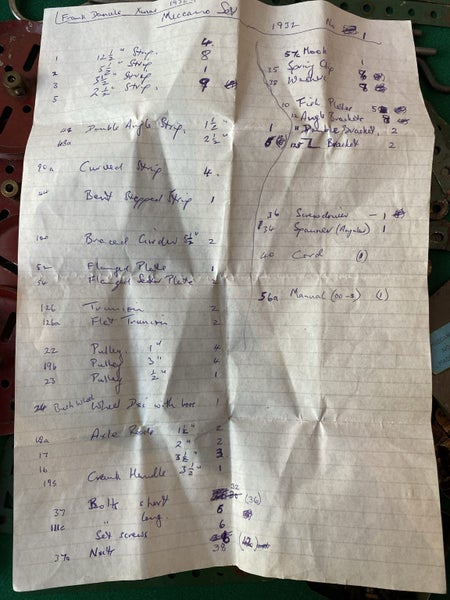 Frank Daniels Xmas
Meccano Set
1932 No 1
1 12½" Strip 4
2 5½" Strip 8
3 3½" Strip 1
5 2½" Strip 9
48 Double Angle Strip 1½" 1
48a 2½" 2
90a Curved Strip 4
44 Bent Stepped Strip 1
100 Braced Girder 5½" 2
52 Flanged Plate 1
54 Flanged Sector Plate 2
126 Trunnion 2
126a Flat Trunnion 2
22 Pulley 1" 4
19b Pulley 3" 4
23 Pulley ½" 1
24 Bush Wheel Wheel Disc with boss 1
18a Axle Rods 1½" 2
17 2" 2
16 3½" 3
19s Crank Handle 3½" 1
37 Bolts short 32 (36)
111c " long 6
Set screws 6
37a Nuts 38
57c Hook 1
35 Spring Clip 8
38 Washers 8
10 Fish Plates
12 Angle Brackets 8
" Double bracket 2
Bracket 2
36 Screwdriver - 1
34 Spanner (Angular) 1
40 Cord (1)
56a Manual (00-3) (1)